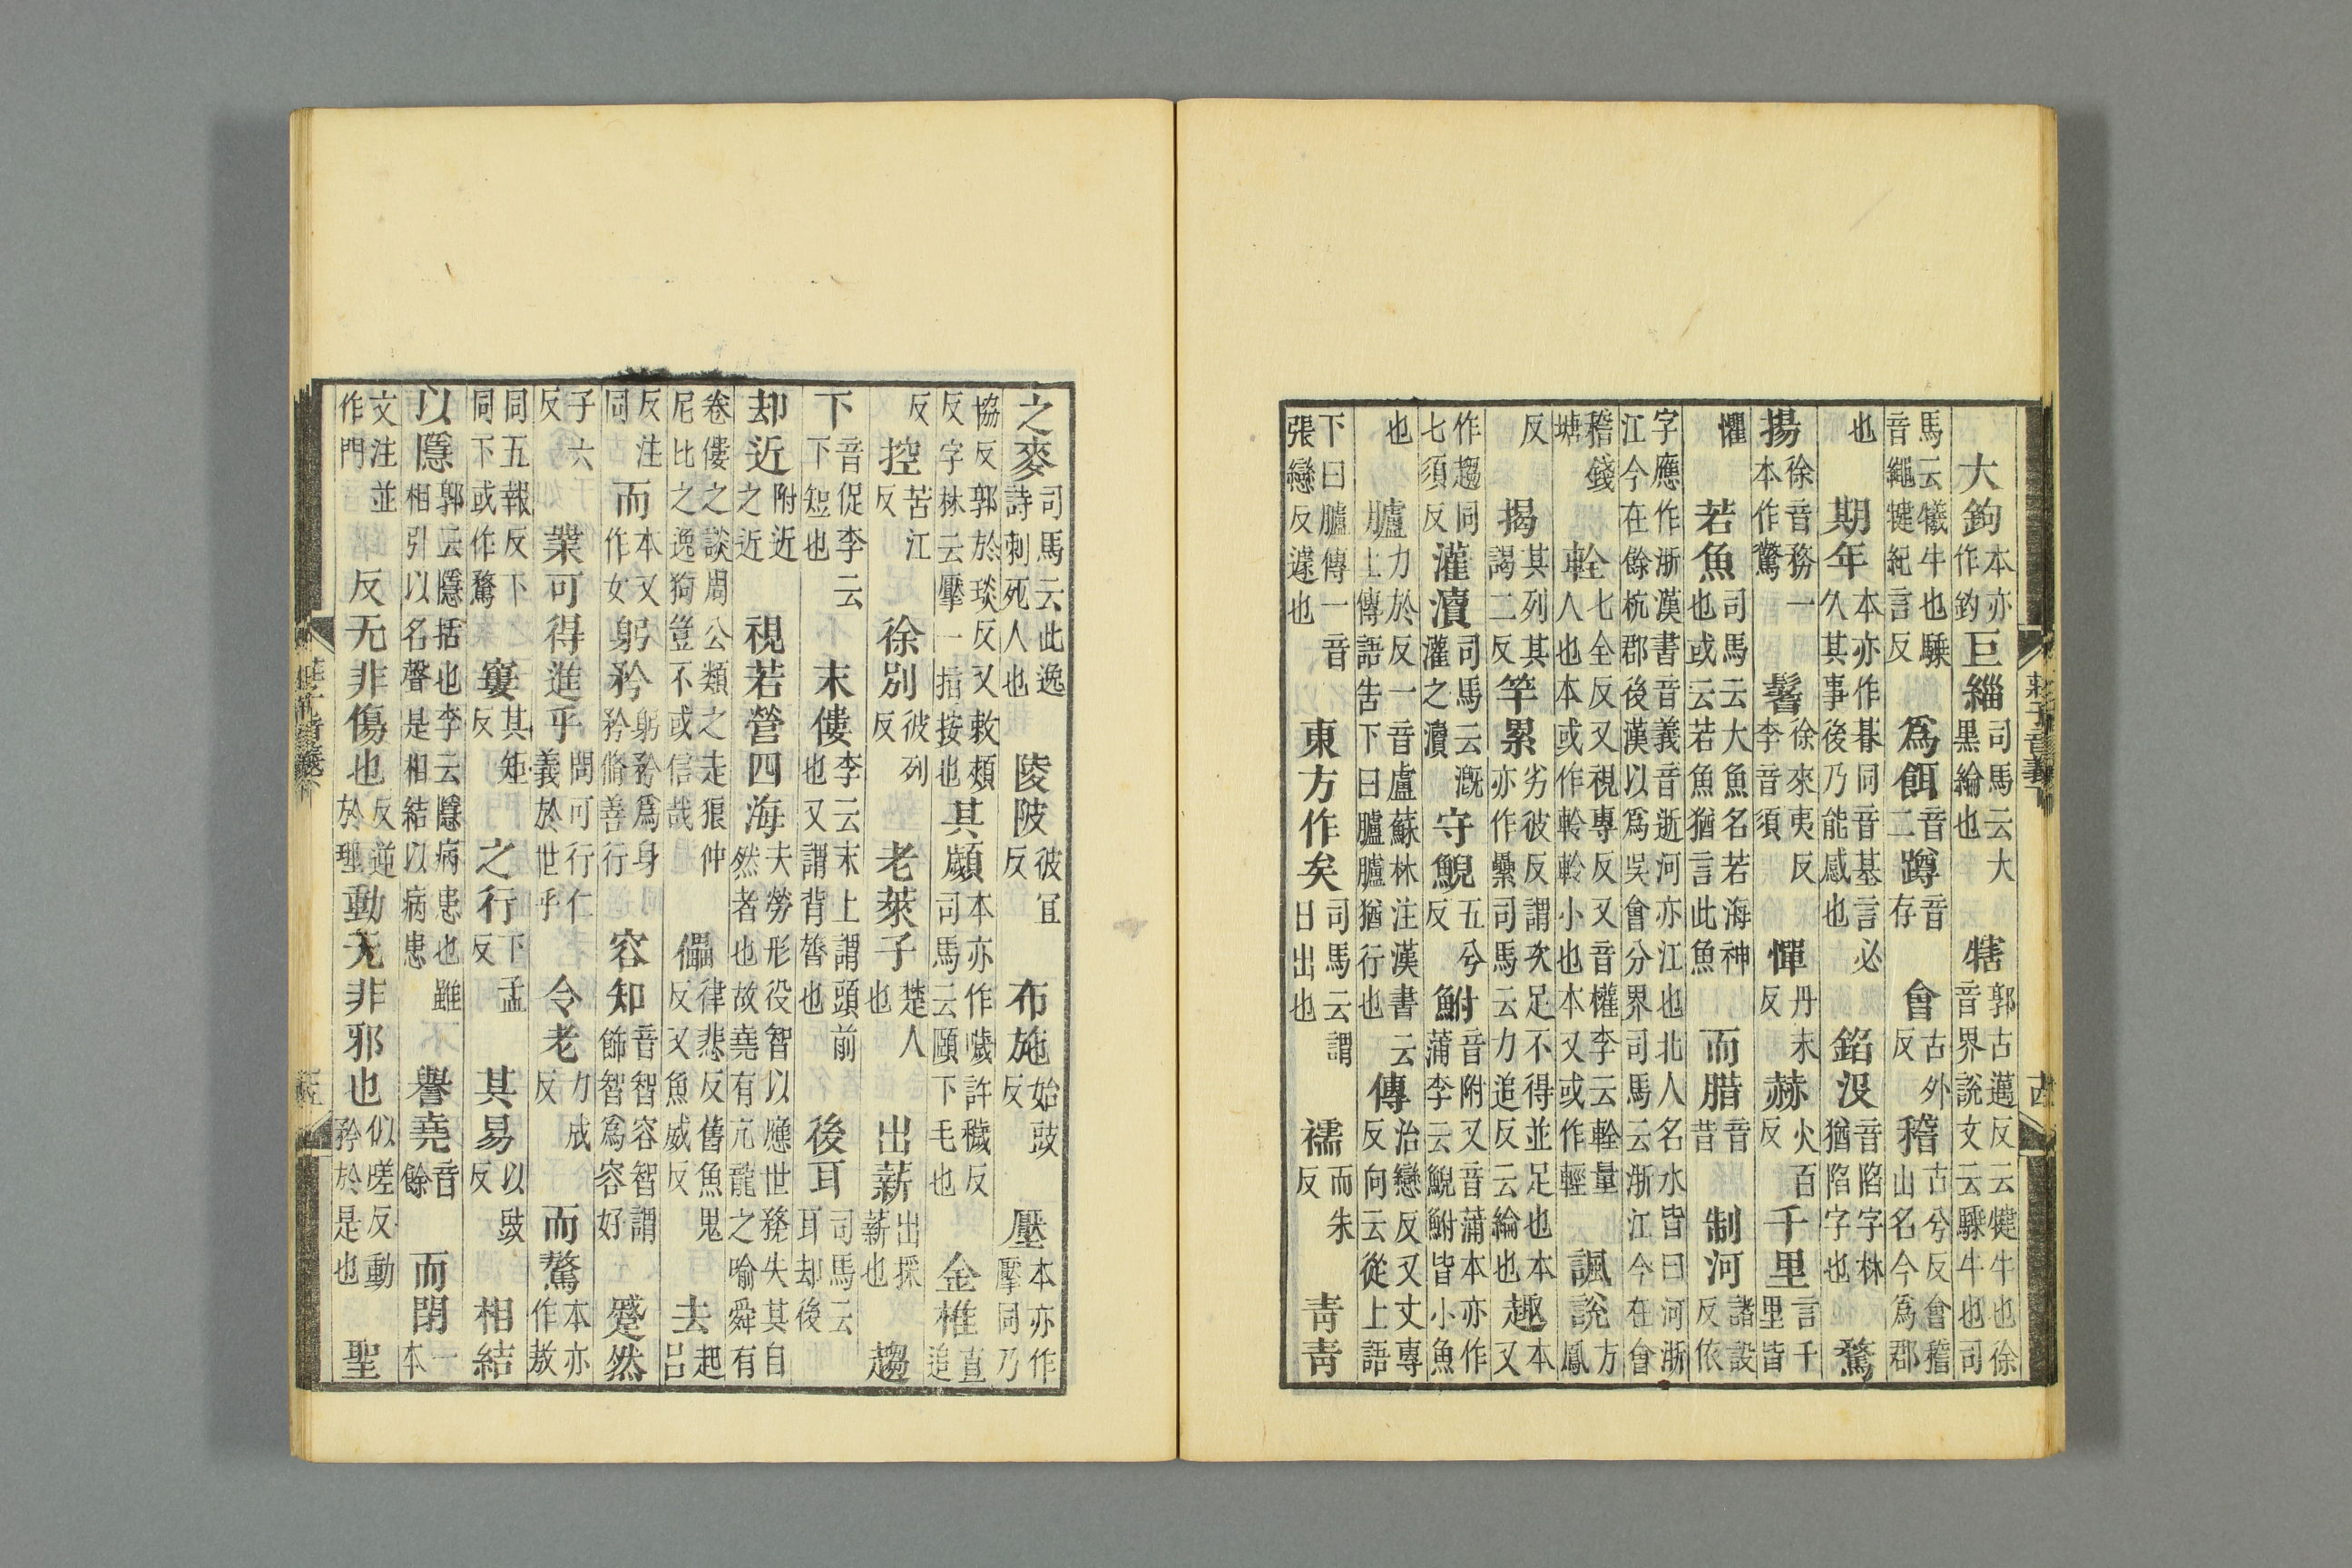 莊子音義下
大鉤本亦作釣巨緇司馬云大黑綸也犗郭古邁反云犍牛也徐音界說文云騬牛也司
馬云犧牛也騬音繩犍紀言反爲餌音二蹲音存會古外反稽古兮反會稽山名今爲郡
也期年本亦作朞同音基言必久其事後乃能感也錎沒音陷字林猶陷字也騖
揚徐音務一本作驚鬐徐來夷反李音須憚丹末反赫火百反千里言千里皆
懼若魚司馬云大魚名若海神也或云若魚猶言此魚而腊音昔制河諸設反依
字應作浙漢書音義音逝河亦江也北人名水皆曰河浙江今在餘杭郡後漢以爲吳會分界司馬云浙江今在會
稽錢塘輇七全反又視專反又音權李云輇量人也本或作軨軨小也本又或作輕諷說方鳳
反揭其列其謁二反竿累劣彼反謂次足不得並足也本亦作纍司馬云力追反云綸也趣本又
作趨同七須反灌瀆司馬云溉灌之瀆守鯢五兮反鮒音附又音蒲本亦作蒲李云鯢鮒皆小魚
也臚力於反一音盧蘇林注漢書云上傳語告下曰臚臚猶行也傳治戀反又丈專反向云從上語
下曰臚傳一音張戀反遽也東方作矣司馬云謂日出也襦而朱反青青
之麥司馬云此逸詩刺死人也陵陂彼宜反布施始豉反壓本亦作擪同乃
協反郭於琰反又敕頰反字林云擪一指按也其顪本亦作噦許穢反司馬云頤下毛也金椎直追
反控苦江反徐別彼列反老萊子楚人也出薪出採薪也趨
下音促李云下短也末僂李云末上謂頭前也又謂背膂也後耳司馬云耳却後
却近附近之近視若營四海夫勞形役智以應世務失其自然者也故堯有亢龍之喻舜有
卷僂之談周公類之走狼仲尼比之逸狗豈不或信哉儡律悲反舊魚鬼反又魚威反去起呂
反注同而本又作女躬矜躬矜爲身矜脩善行容知音智容智謂飾智爲容好蹙然
子六反業可得進乎問可行仁義於世乎令老力成反而驁本亦作敖
同五報反下同下或作騖窶其矩反之行下孟反其易以豉反相結
以隱郭云隱括也李云隱病患也雖相引以名聲是相結以病患譽堯音餘而閉一本
文注並作門反无非傷也反逆於理動无非邪也似嗟反動矜於是也聖